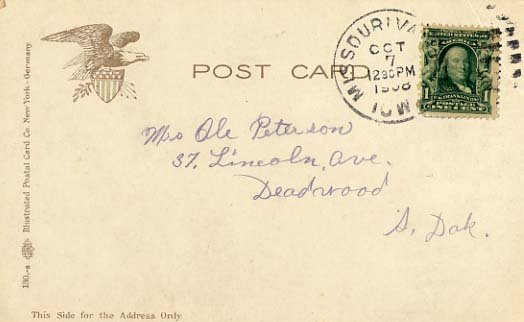 MISSOURI VA
OCT
7
1230PM
1908
IOW
POST CARD
1
Mrs Ole Peterson
37. Lincoln, Ave.
Deadwood
S. Dak.
130.-s Illustrated Postal Card Co. New York-Germany
This Side for the Address Only.